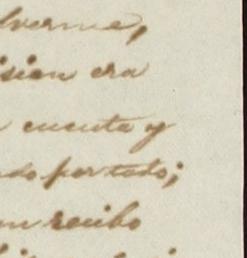 lverme,
ision era
cuenta y
do por todo;
un recibo